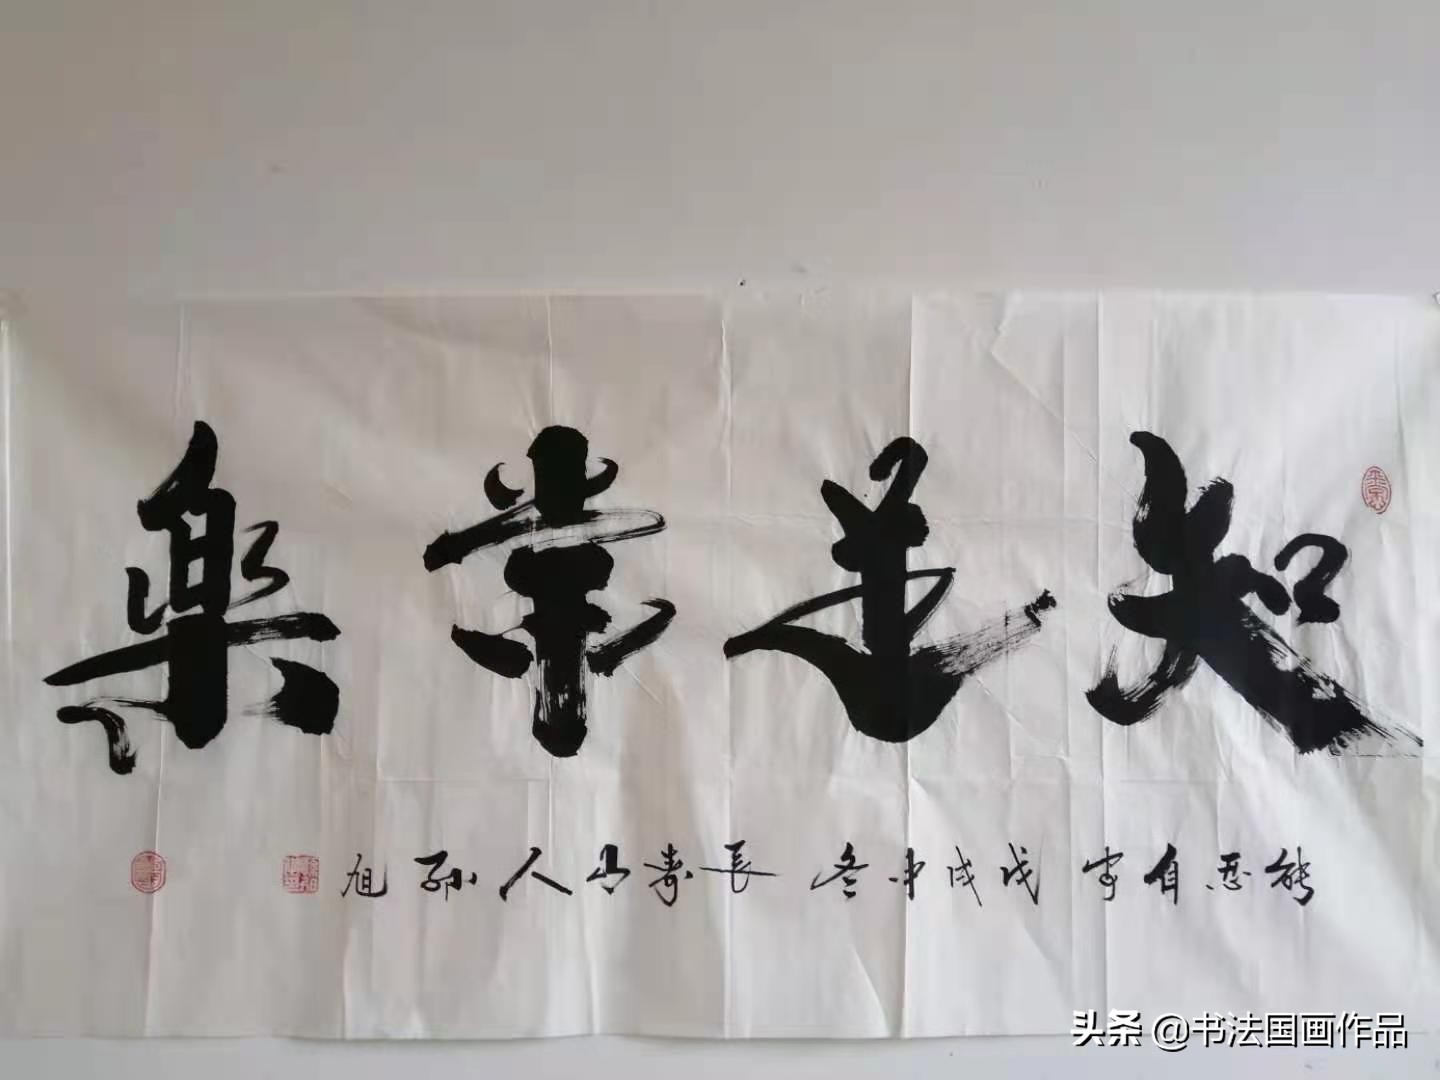 知足常樂
能忍自安 戊戌中冬 長壽山人 孫旭
头条 @书法国画作品